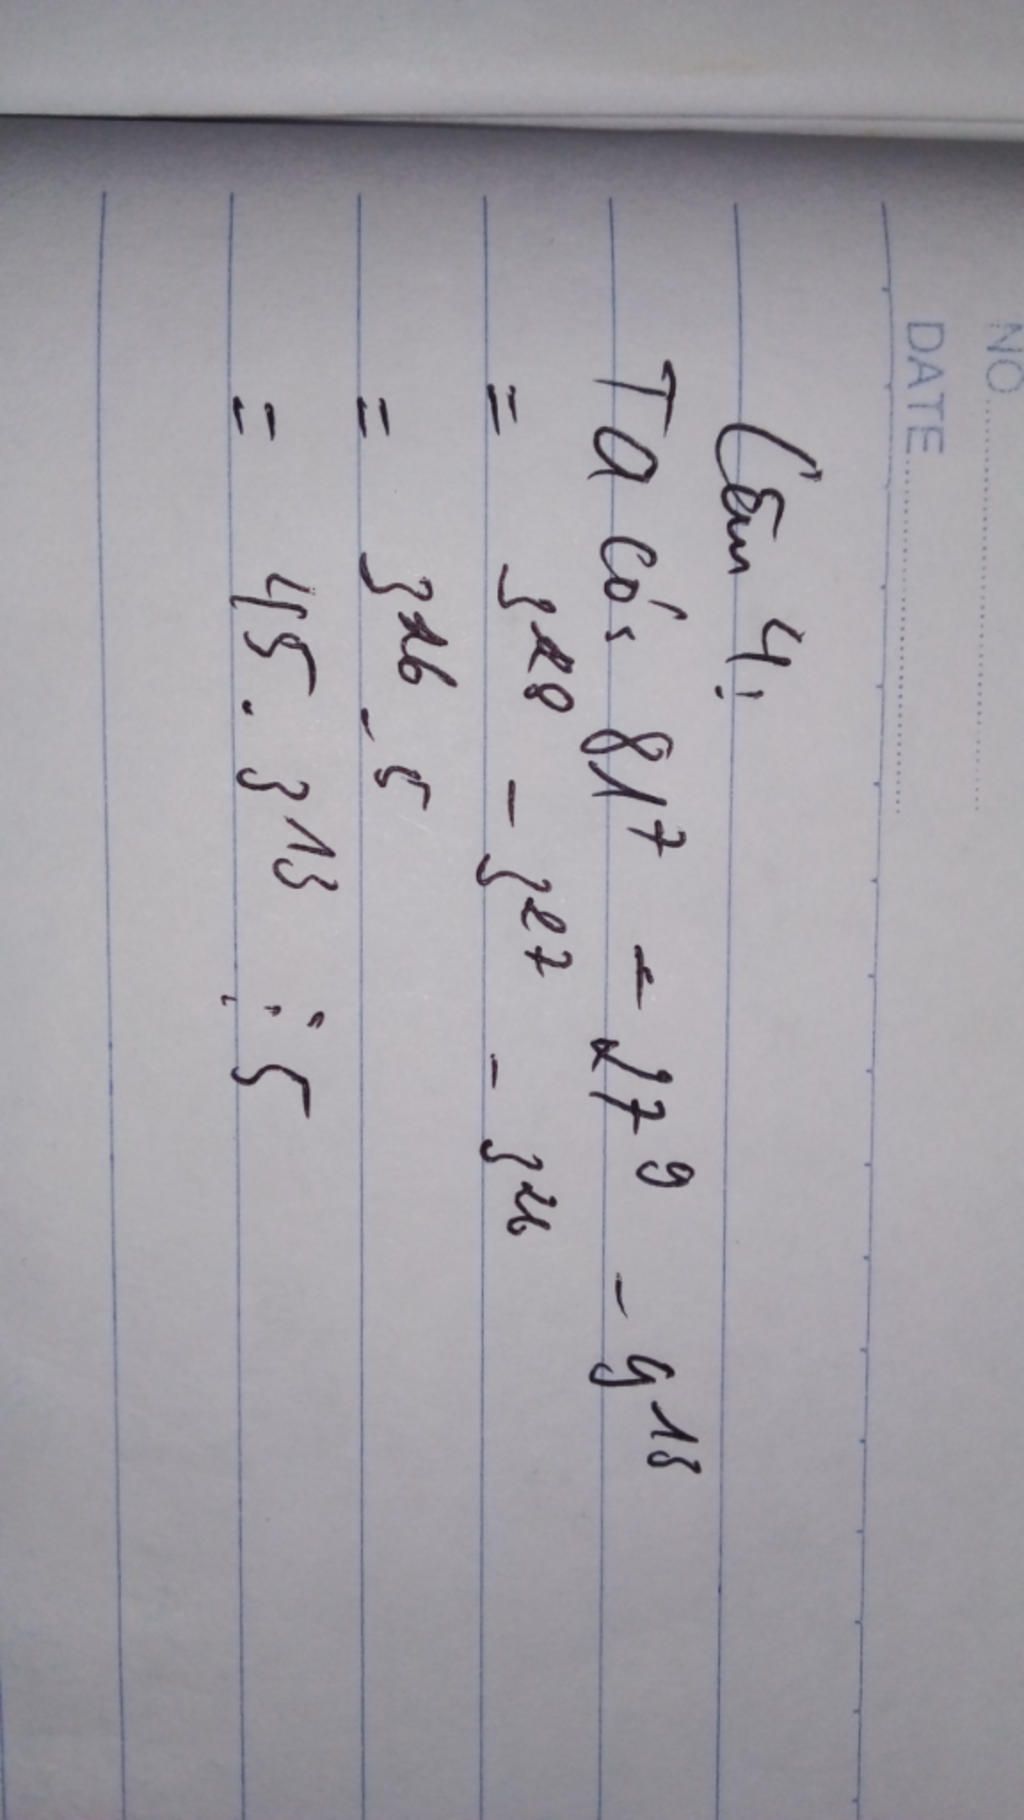 NO
DATE
Câu 4:
Ta có: 81⁷ - 27⁹ - 9¹³
= 3²⁸ - 3²⁷ - 3²⁶
= 3²⁶ . 5
= 45 . 3¹³ ⋮ 5